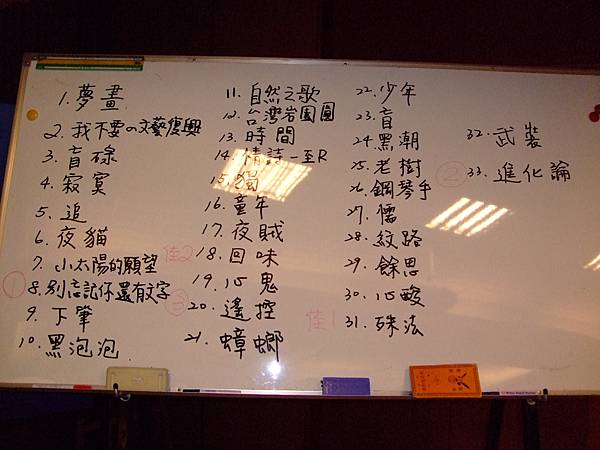 1. 夢畫
2. 我不要の文藝復興
3. 盲碌
4. 寂寞
5. 追
6. 夜貓
7. 小太陽的願望
① 8. 別忘記你還有文字
9. 下筆
10. 黑泡泡
11. 自然之歌
12. 台灣岩園圖
13. 時間
14. 情詩-至R
15. 獨
16. 童年
17. 夜賊
佳2 18. 回味
19. 心鬼
③ 20. 遙控
21. 蟑螂
22. 少年
23. 盲
24. 黑潮
25. 老樹
26. 鋼琴手
27. 懦
28. 紋路
29. 餘思
30. 心酸
佳1 31. 殊法
32. 武裝
② 33. 進化論